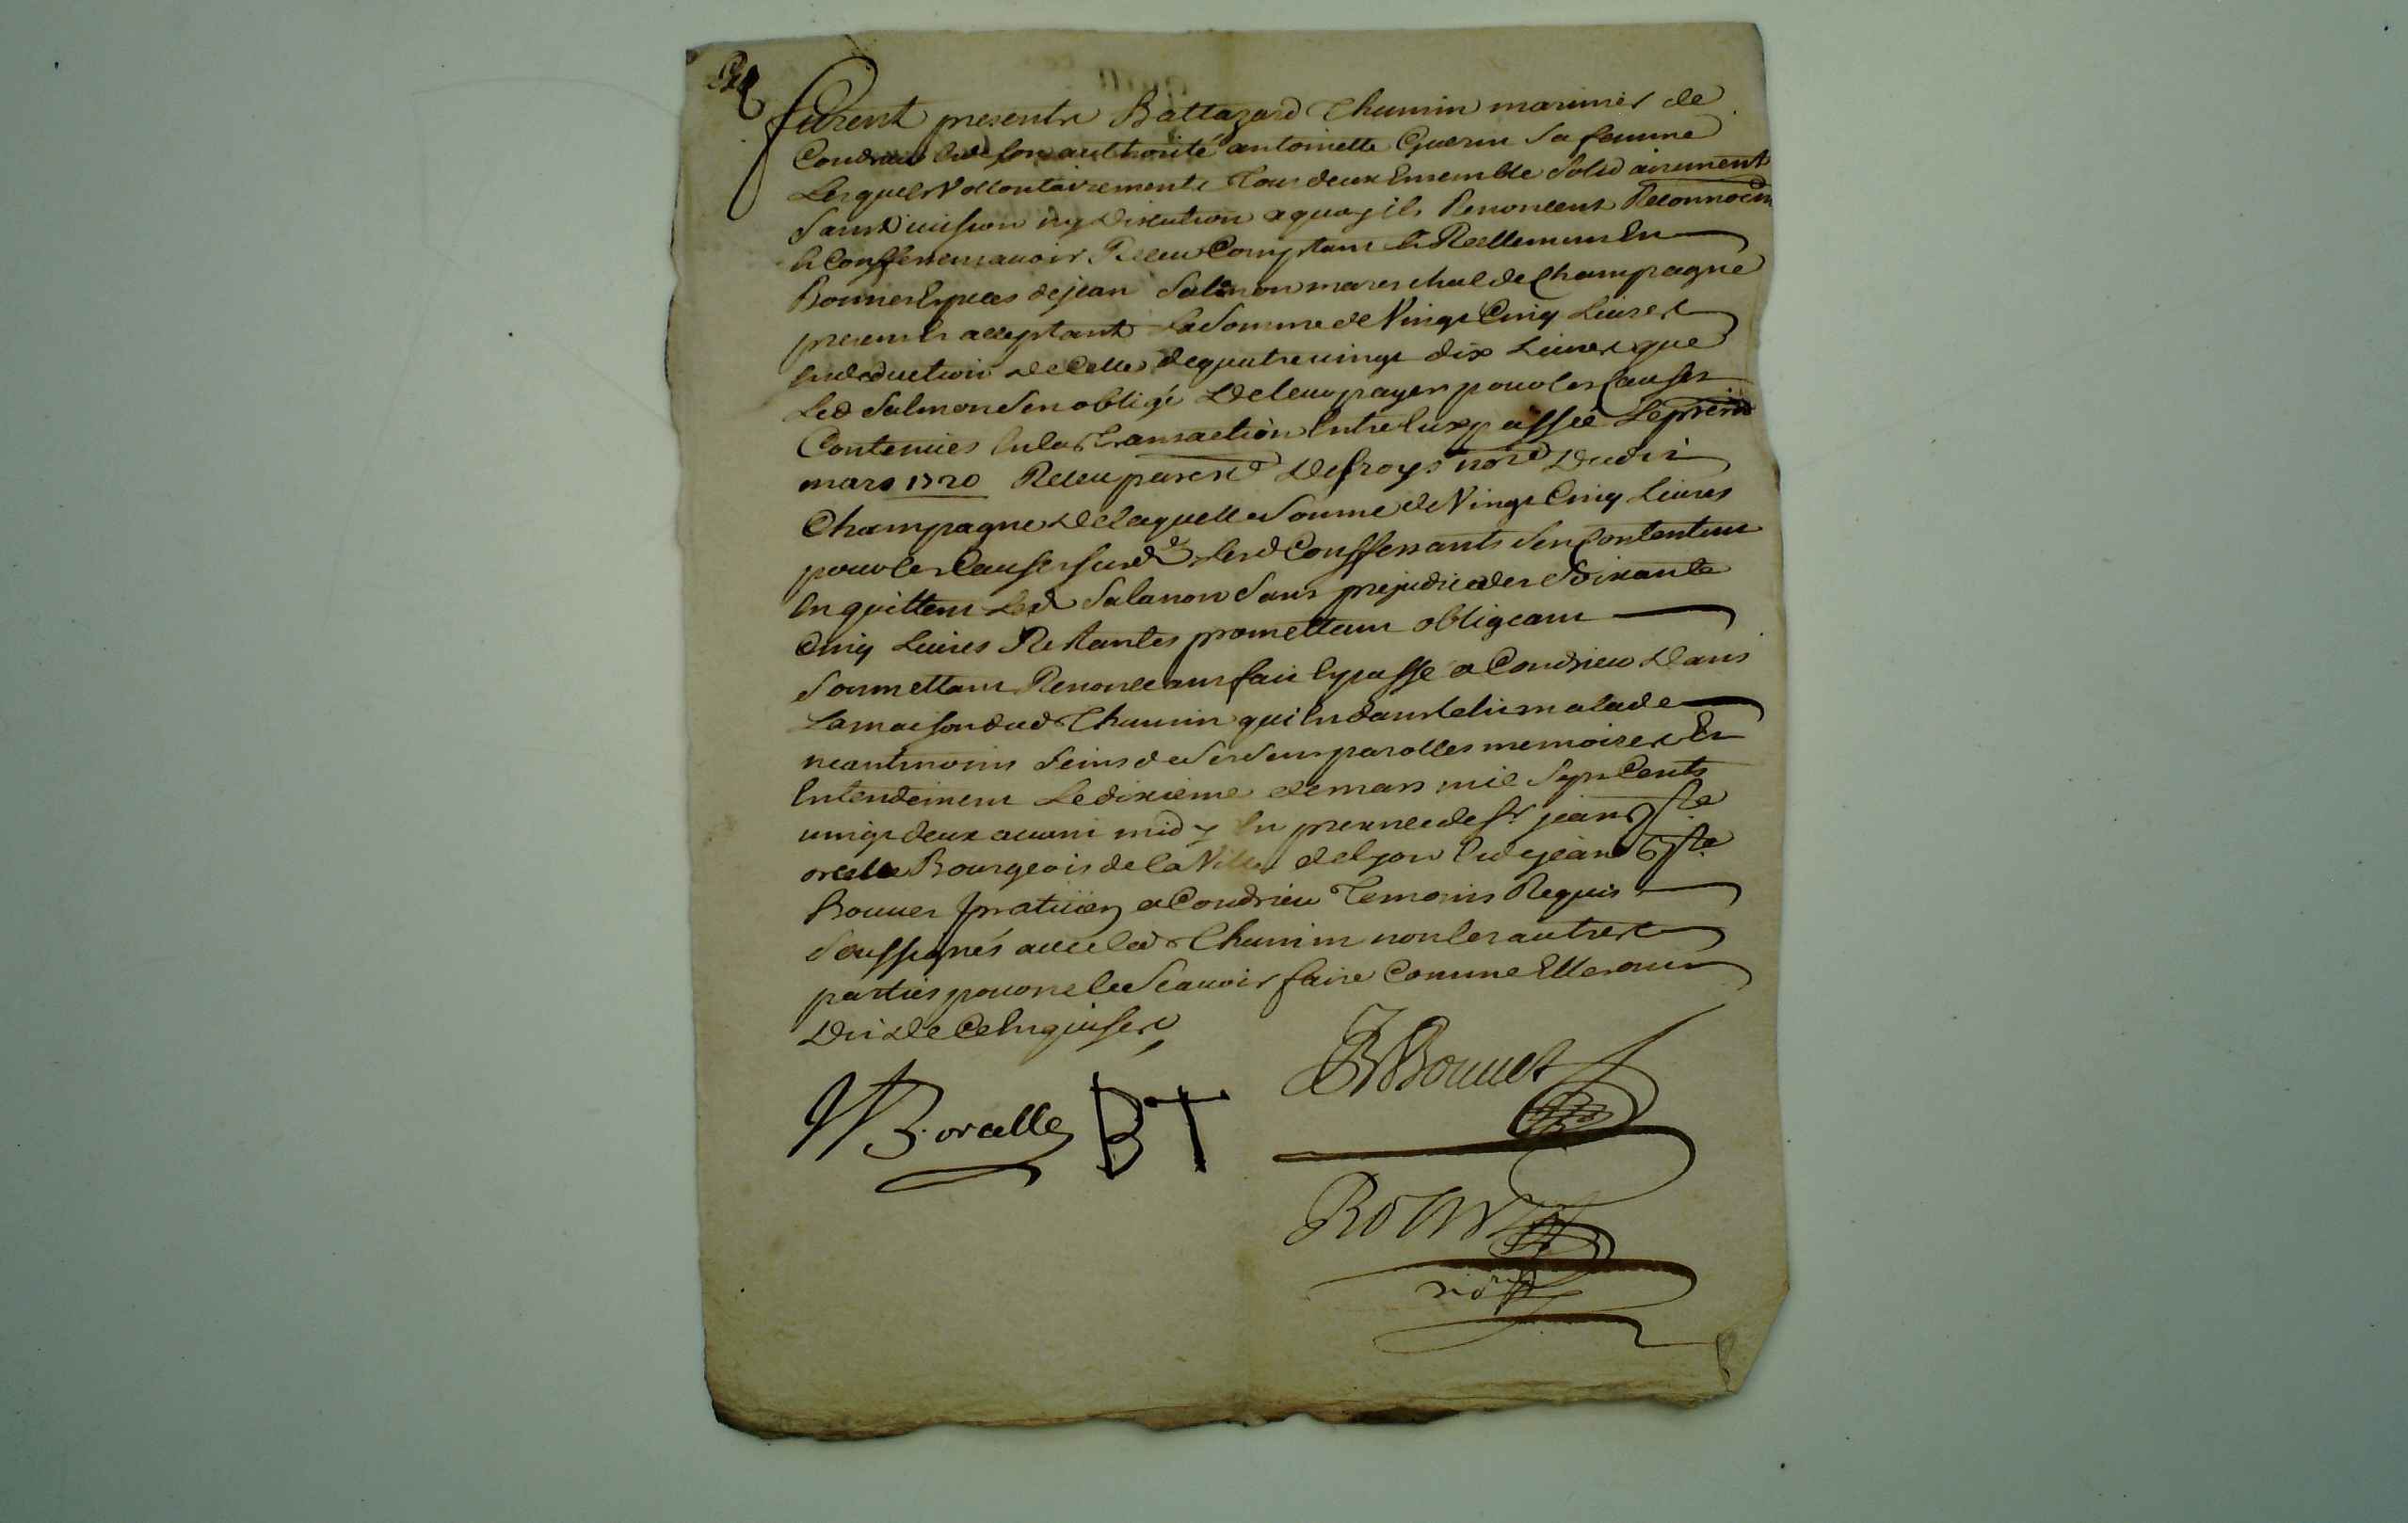 furent presents Baltazard Thunin marinier de
Condrieu & de son authorité antoinette Guerin sa femme
Lesquels Vollontairement Tous deux Ensemble Solidairement
sans Division ny Discution a quoy ils Renoncent Reconnoiss
& Confessent avoir Receu Comptant & Reellement En
Bonnes Especes de jean Salmon mareschal de Champagne
present & acceptant La Somme de Vingt Cinq Livres
En deduction de Celle de quatre vingt dix Livres que
Led Salmon s'en obligé De leur payer pour les Causes
Contenues En la Transaction Entre Eux passée Le
mars 1720 Receu par Defroys nore Dudit
Champagne De laquelle Somme de Vingt Cinq Livres
pour les Causes susd Lesd Confessants s'en Contentent
En quittent Led Salamon Sans prejudice des Soixante
Cinq Livres Restantes promettant obligeant
Soumettant Renonceant fait & passé a Condrieu Dans
La maison dud Thunin qui En dans le lit malade
neantmoins Seins de ses Sens parolles memoire Et
Entendement Le dixieme de mars mil Sept Cents
vingt deux avant midy En presence de Sr jean Bste
orcelle Bourgeois de la Ville de Lyon & de jean Bste
Bonnet praticien a Condrieu Temoins Requis
Soussignés avec led Thunin non les autres
parties pour ne le Scavoir faire Comme Elles ont
Dit De Ce Enquises
JB. orcelle BT JB Bonnet